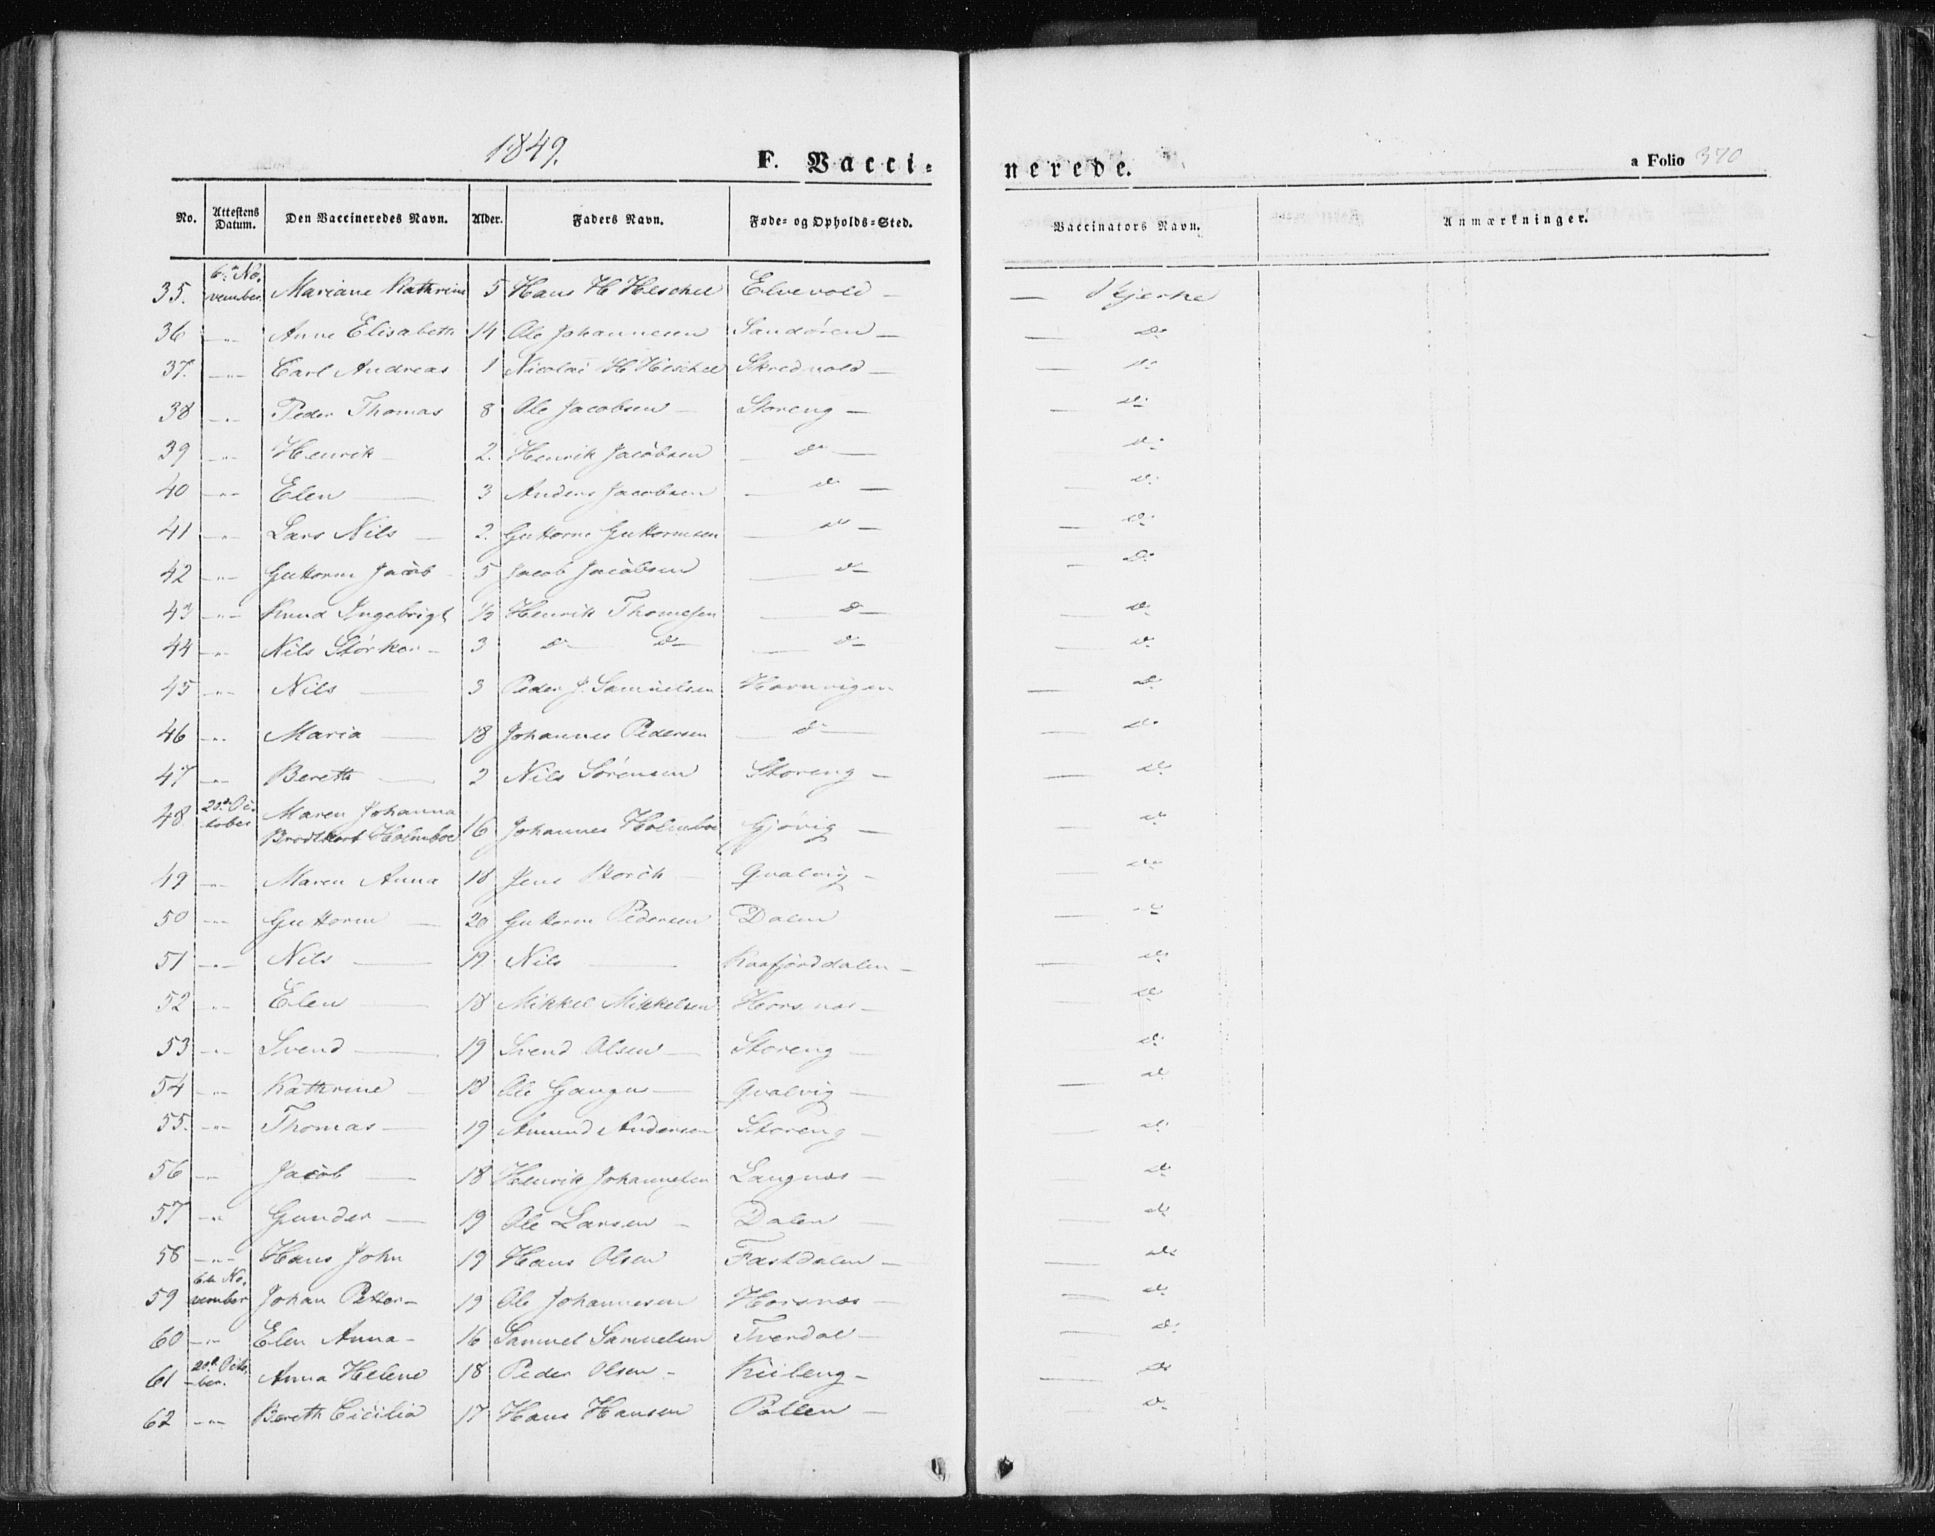 1849.
F. Vacci=
nerede.
a Folio 370
No. Attestens Datum. Den Vaccineredes Navn. Alder. Faders Navn. Føde= og Opholds=Sted. Vaccinators Navn. Anmærkninger.
35. 6te November Mariane Kathrine 5 Hans H Heschel Elvevold — — Skjerke
36 —"— Anne Elisabeth 14 Ole Johannesen Sandøren — — do
37. —"— Carl Andreas 1 Nicolai H Heschel Skredvold — — do
38 —"— Peder Thomas 8 Ole Jacobsen — Storeng — — do
39 —"— Henrik — 2. Henrik Jacobsen — do — — do
40 —"— Elen — 3 Anders Jacobsen — do — — do
41 —"— Lars Nils — 2. Guttorm Guttormsen — do — — do
42 —"— Guttorm Jacob — 5 Jacob Jacobsen — do — — do
43 —"— Knud Ingebrigt 1/2 Henrik Thomesen — do — — do
44 —"— Nils Størker — 3 do — do — — do — — do
45 —"— Nils — 3 Peder J. Samuelsen Havnvigen — do
46 —"— Maria — 18 Johannes Pedersen — do — — do
47 —"— Bereth — 2 Nils Sørensen Storeng — — do
48 20de October Maren Johanna
Brodtkorb Holmboe 16 Johannes Holmboe Gjøvig — — do
49 —"— Maren Anna 18 Jens Borch — Qvalvig — — do
50 —"— Guttorm — 20 Guttorm Pedersen Dalen — do
51 —"— Nils — 19 Nils — Kaafjorddalen — — do
52 —"— Elen — 18 Mikkel Mikkelsen Horsnæs — — do
53 —"— Svend — 19 Svend Olsen — Storeng — — do
54 —"— Kathrine — 18 Ole Qvalvig — — do
55. —"— Thomas — 19 Amund Andersen Storeng — — do
56 —"— Jacob — 18 Henrik Johannesen Langnæs — — do
57 —"— Gunder — 19 Ole Larsen — Dalen — — do
58 —"— Hans John 19 Hans Olsen Fastdalen — — do
59 6te November Johan Petter — 19 Ole Johannesen Horsnæs — — do
60 —"— Elen Anna — 16 Samuel Samuelsen Tverdal — — do
61 20de October. Anna Helene 18 Peder Olsen — Kiileng — — do
62 —"— Bereth Cicilia 17 Hans Hansen Pollen — — do